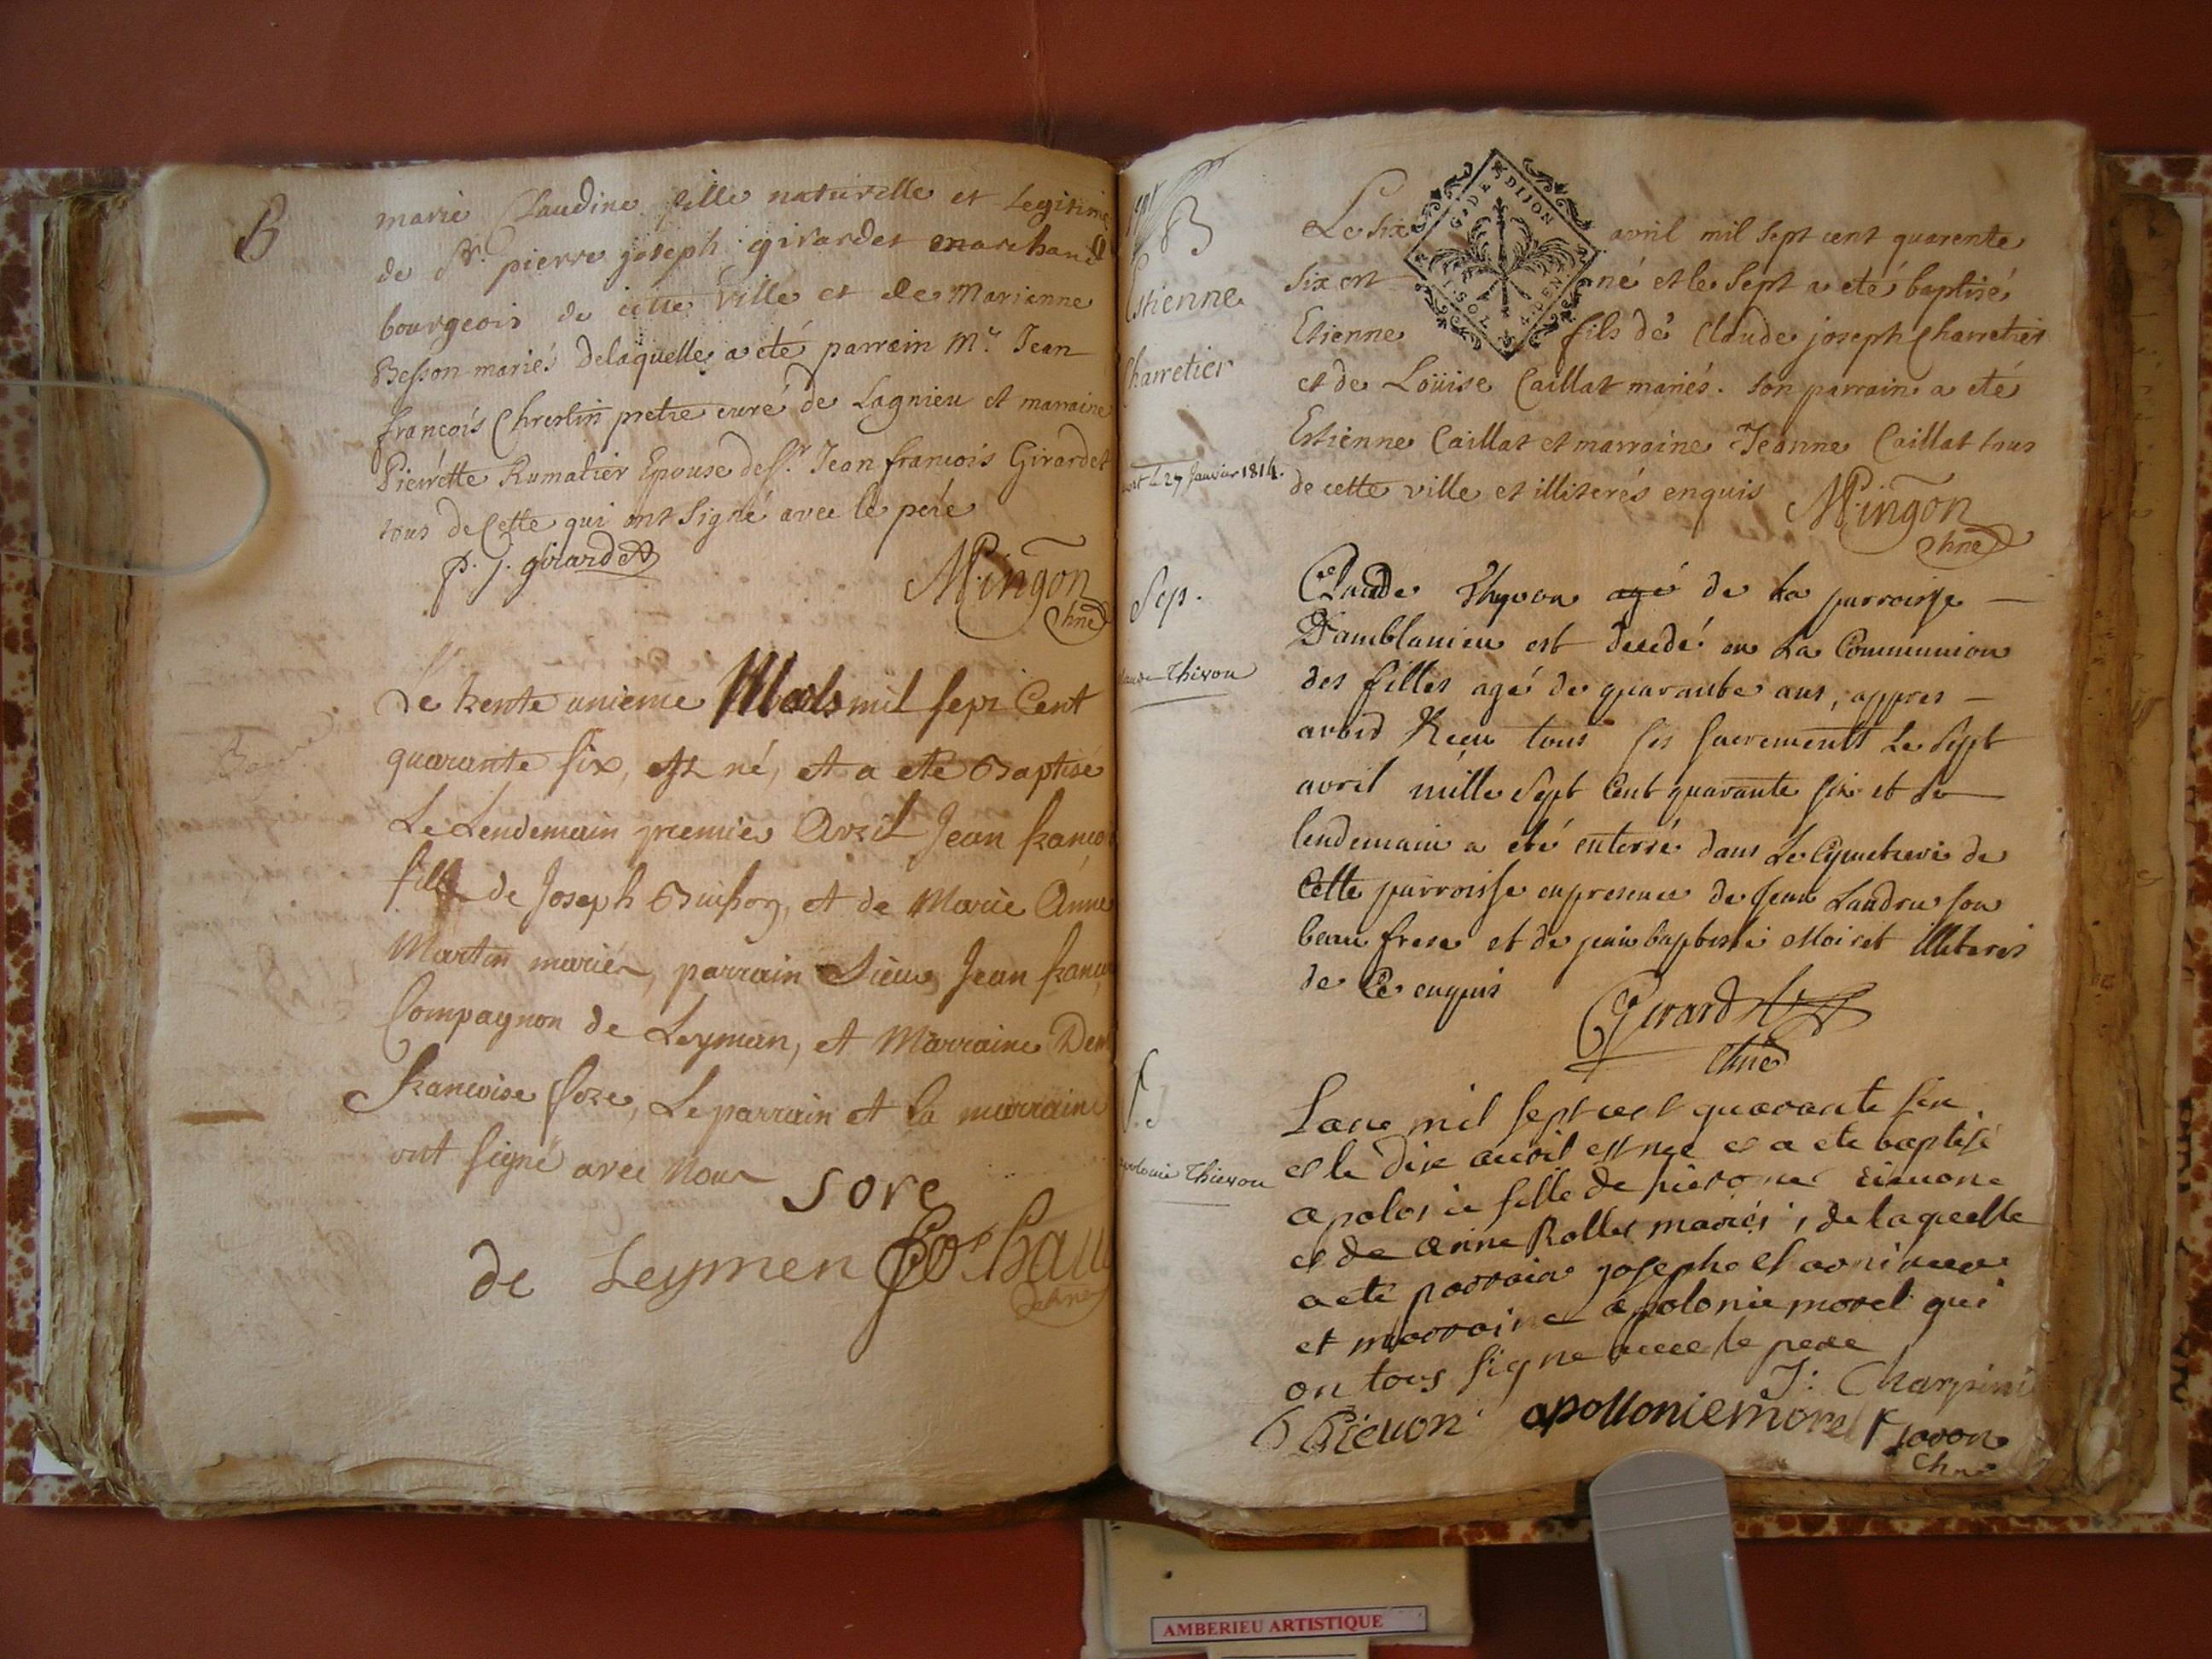 B
marie Claudine fille naturelle et legitime
de Sr. pierre joseph girardet marchand
bourgeois de cette ville et de Marianne
Besson mariés delaquelle a eté parrain Mr. Jean
francois Chrestin pretre curé de Lagnieu et marraine
Pierrette Rumatier Epouse de Sr. Jean francois Girardet
tous de Cette qui ont signé avec le pére
p. j. girardet
Mingon
Le trente unieme Mars mil sept Cent
quarante six, est né, et a eté Baptisé
Le Lendemain premier Avril Jean francois
fils de Joseph Buisson, et de Marie Anne
Martin mariés, parrain Sieur Jean francois
Compagnon de Leymen, et Marraine
francoise Sore, Le parrain et la marraine
ont signé avec Nous
sore
de Leymen
B
Estienne
Charretier
mort le 27 Janvier 1814.
G. DE DIJON
Le six avril mil sept cent quarente
six est né et le sept a eté baptisé
Etienne fils de Claude joseph Charretier
et de Loüise Caillat mariés. son parrain a eté
Estienne Caillat et marraine Jeanne Caillat tous
de cette ville et illiterés enquis
Mingon
Sep.
Thivon
Claude Thyvon agé de la parroisse
D'amblanieu est decedé en La Communion
des filles agé de quarante ans, appres
avoir Reçu tous ses sacrements Le sept
avril mille sept Cent quarante six et le
lendemain a eté enterré dans Le Cymetiere de
Cette parroisse en presence de Jean Landru son
beau frere et de jean baptiste Moiret illiteres
de Ce enquis
Girardet
apolonie Thievon
Lan mil sept cent quarante six
et le dix avril est nee et a ete baptisé
apolonie fille de
et de anne Rollet mariés, de laquelle
a eté parrain joseph
et marraine apolonie morel qui
on tous signe avec le pere
J: Charpini
apollonie morel